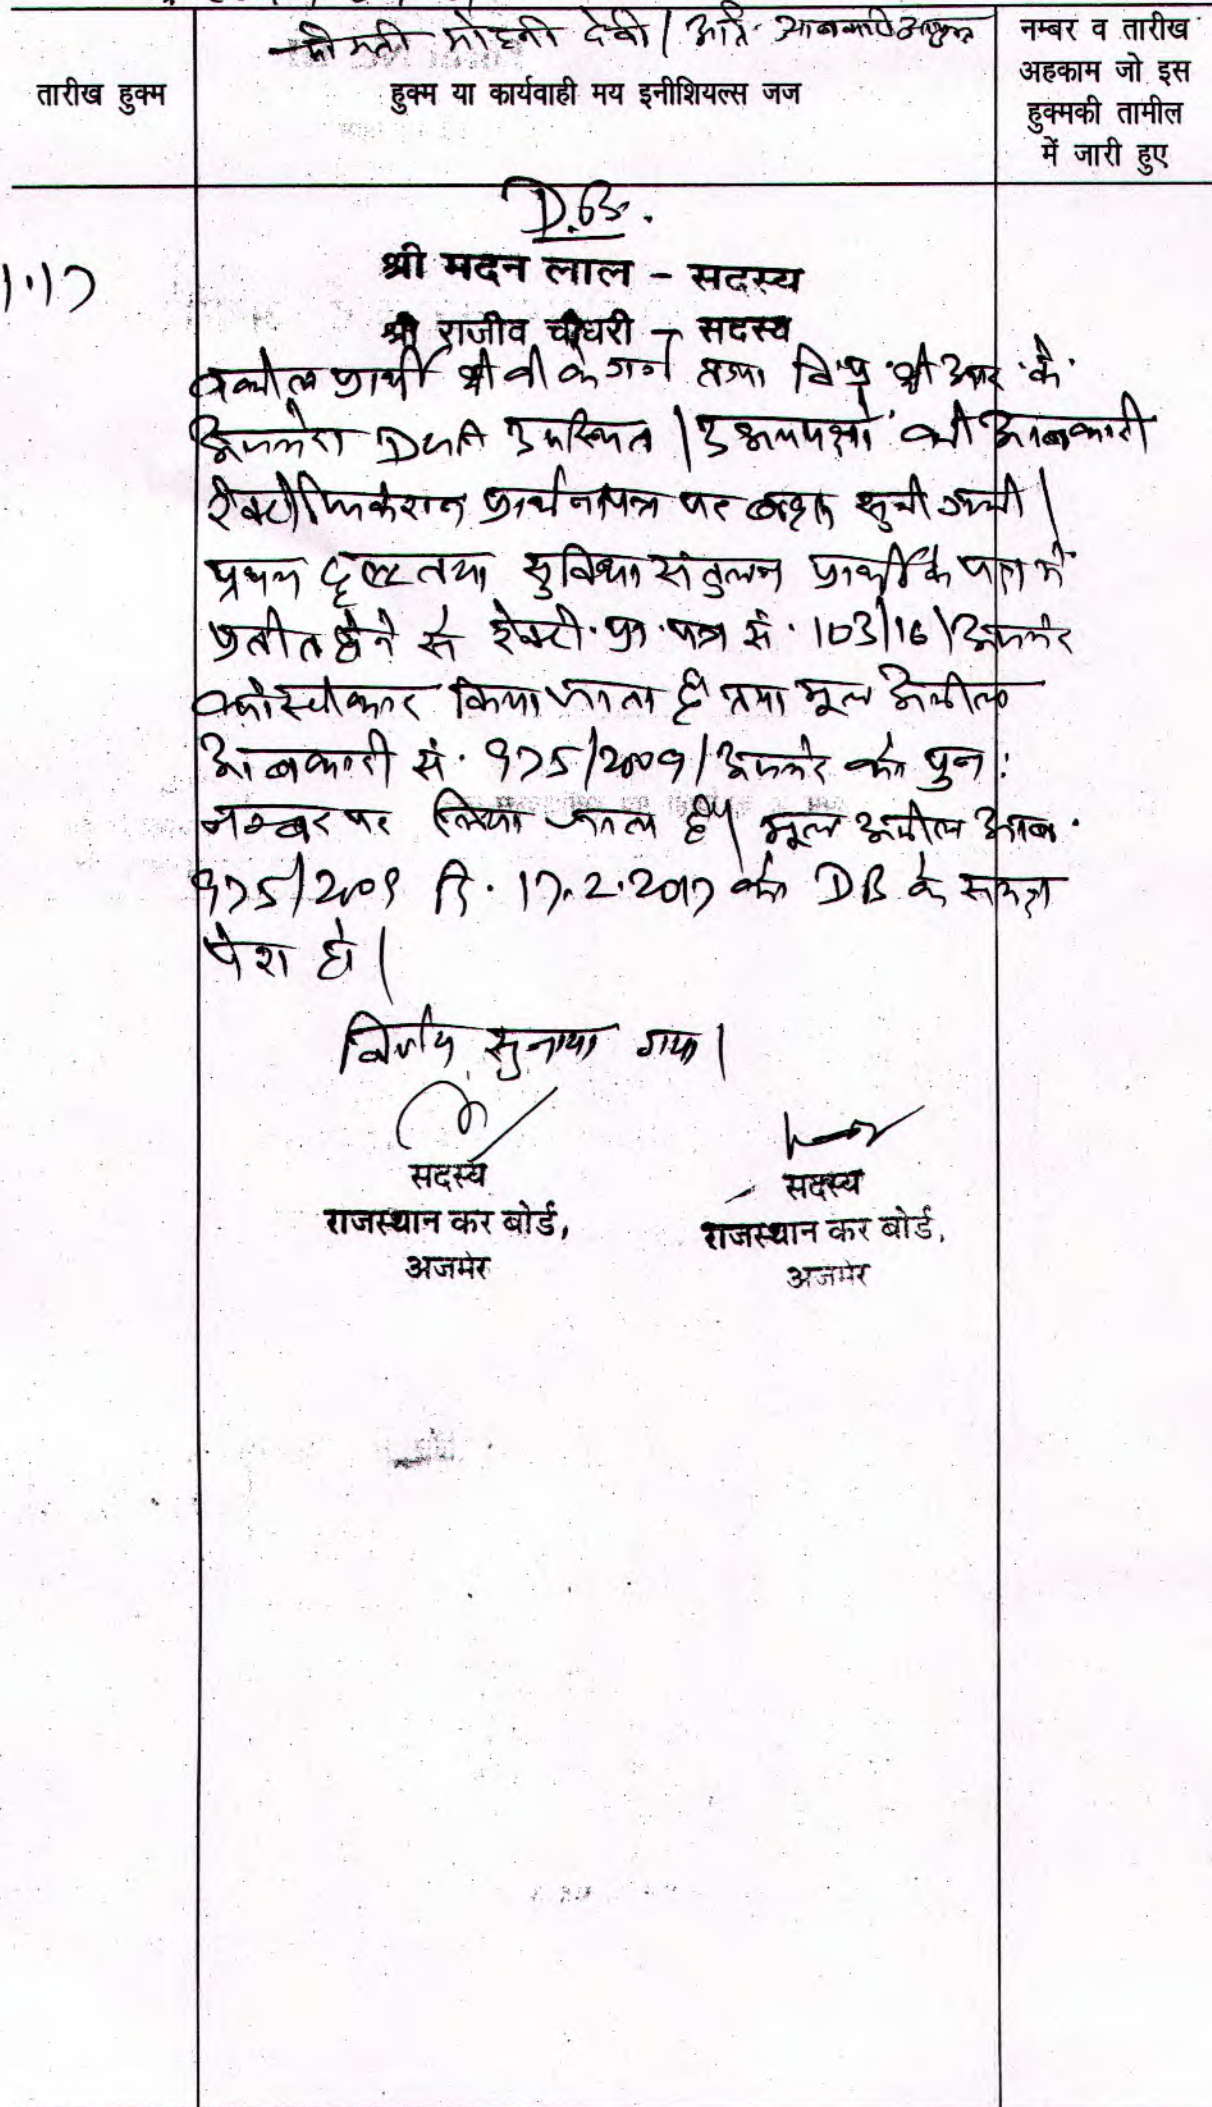 श्रीमती मोहनी देवी / अति. आबकारी आयुक्त
तारीख हुक्म
हुक्म या कार्यवाही मय इनीशियल्स जज
नम्बर व तारीख
अहकाम जो इस
हुक्मकी तामील
में जारी हुए
D.B.
श्री मदन लाल - सदस्य
श्री राजीव चौधरी - सदस्य
वकील प्रार्थी श्री वी के गर्ग तथा वि.प्र. श्री आर. के.
अजमेरा उपस्थित | उभयपक्षों की आबकारी
रेक्टीफिकेशन प्रार्थनापत्र पर बहस सुनी गयी |
प्रथम दृष्टतया सुविधा संतुलन प्रार्थी के पक्ष में
प्रतीत होने से रेक्टी. प्रा. पत्र सं. 103/16/अजमेर
को स्वीकार किया जाता है तथा मूल अपील
आबकारी सं. 975/2009/अजमेर को पुन:
नम्बर पर लिया जाता है | मूल अपील आब.
975/2009 दि. 17.2.2017 को DB के समक्ष
पेश हो |
निर्णय सुनाया गया |
सदस्य
राजस्थान कर बोर्ड,
अजमेर
सदस्य
राजस्थान कर बोर्ड,
अजमेर